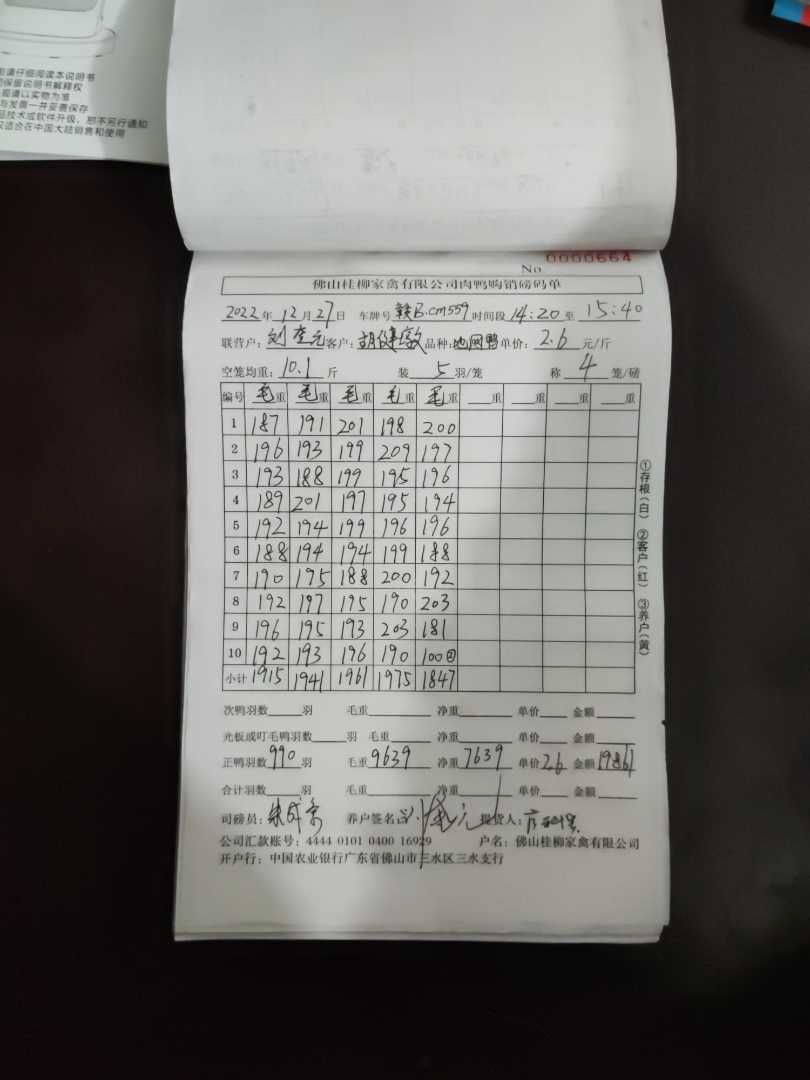 请仔细阅读本说明书
保留说明书解释权
请以实物为准
与发票一并妥善保存
品技术或软件升级，恕不另行通知
仅适合在中国大陆销售和使用
No 0000664
佛山桂柳家禽有限公司肉鸭购销磅码单
2022年12月27日 车牌号 赣B.cm559 时间段 14:20 至 15:40
联营户: 刘奎元 客户: 胡健敏 品种: 地网鸭 单价: 2.6 元/斤
空笼均重: 10.1 斤 装 5 羽/笼 称 4 笼/磅
编号 毛重 毛重 毛重 毛重 毛重 重 重 重 重
1 187 191 201 198 200
2 196 193 199 209 197
3 193 188 199 195 196
4 189 201 197 195 194
5 192 194 199 196 196
6 188 194 194 199 188
7 190 195 188 200 192
8 192 197 195 190 203
9 196 195 193 203 181
10 192 193 196 190 100②
小计 1915 1941 1961 1975 1847
①存根(白) ②客户(红) ③养户(黄)
次鸭羽数 羽 毛重 净重 单价 金额
光板或叮毛鸭羽数 羽 毛重 净重 单价 金额
正鸭羽数 990 羽 毛重 9639 净重 7639 单价 2.6 金额 19861
合计羽数 羽 毛重 净重 单价 金额
司磅员: 养户签名: 提货人:
公司汇款账号: 4444 0101 0400 16929 户名: 佛山桂柳家禽有限公司
开户行: 中国农业银行广东省佛山市三水区三水支行